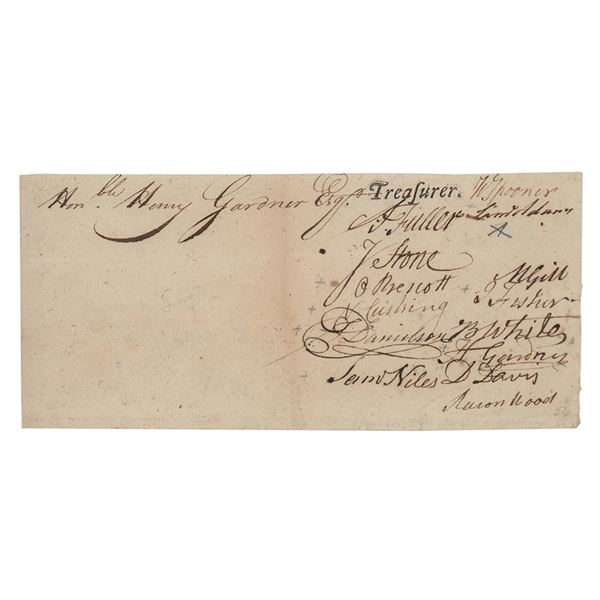 Honble Henry Gardner Esqr Treaſurer. W Spooner
A Fuller Saml Adams
J Stone
O Prescott M Gill
Cushing J Fisher
T Danielson B White
H Gardner
Saml Niles D Davis
Aaron Wood